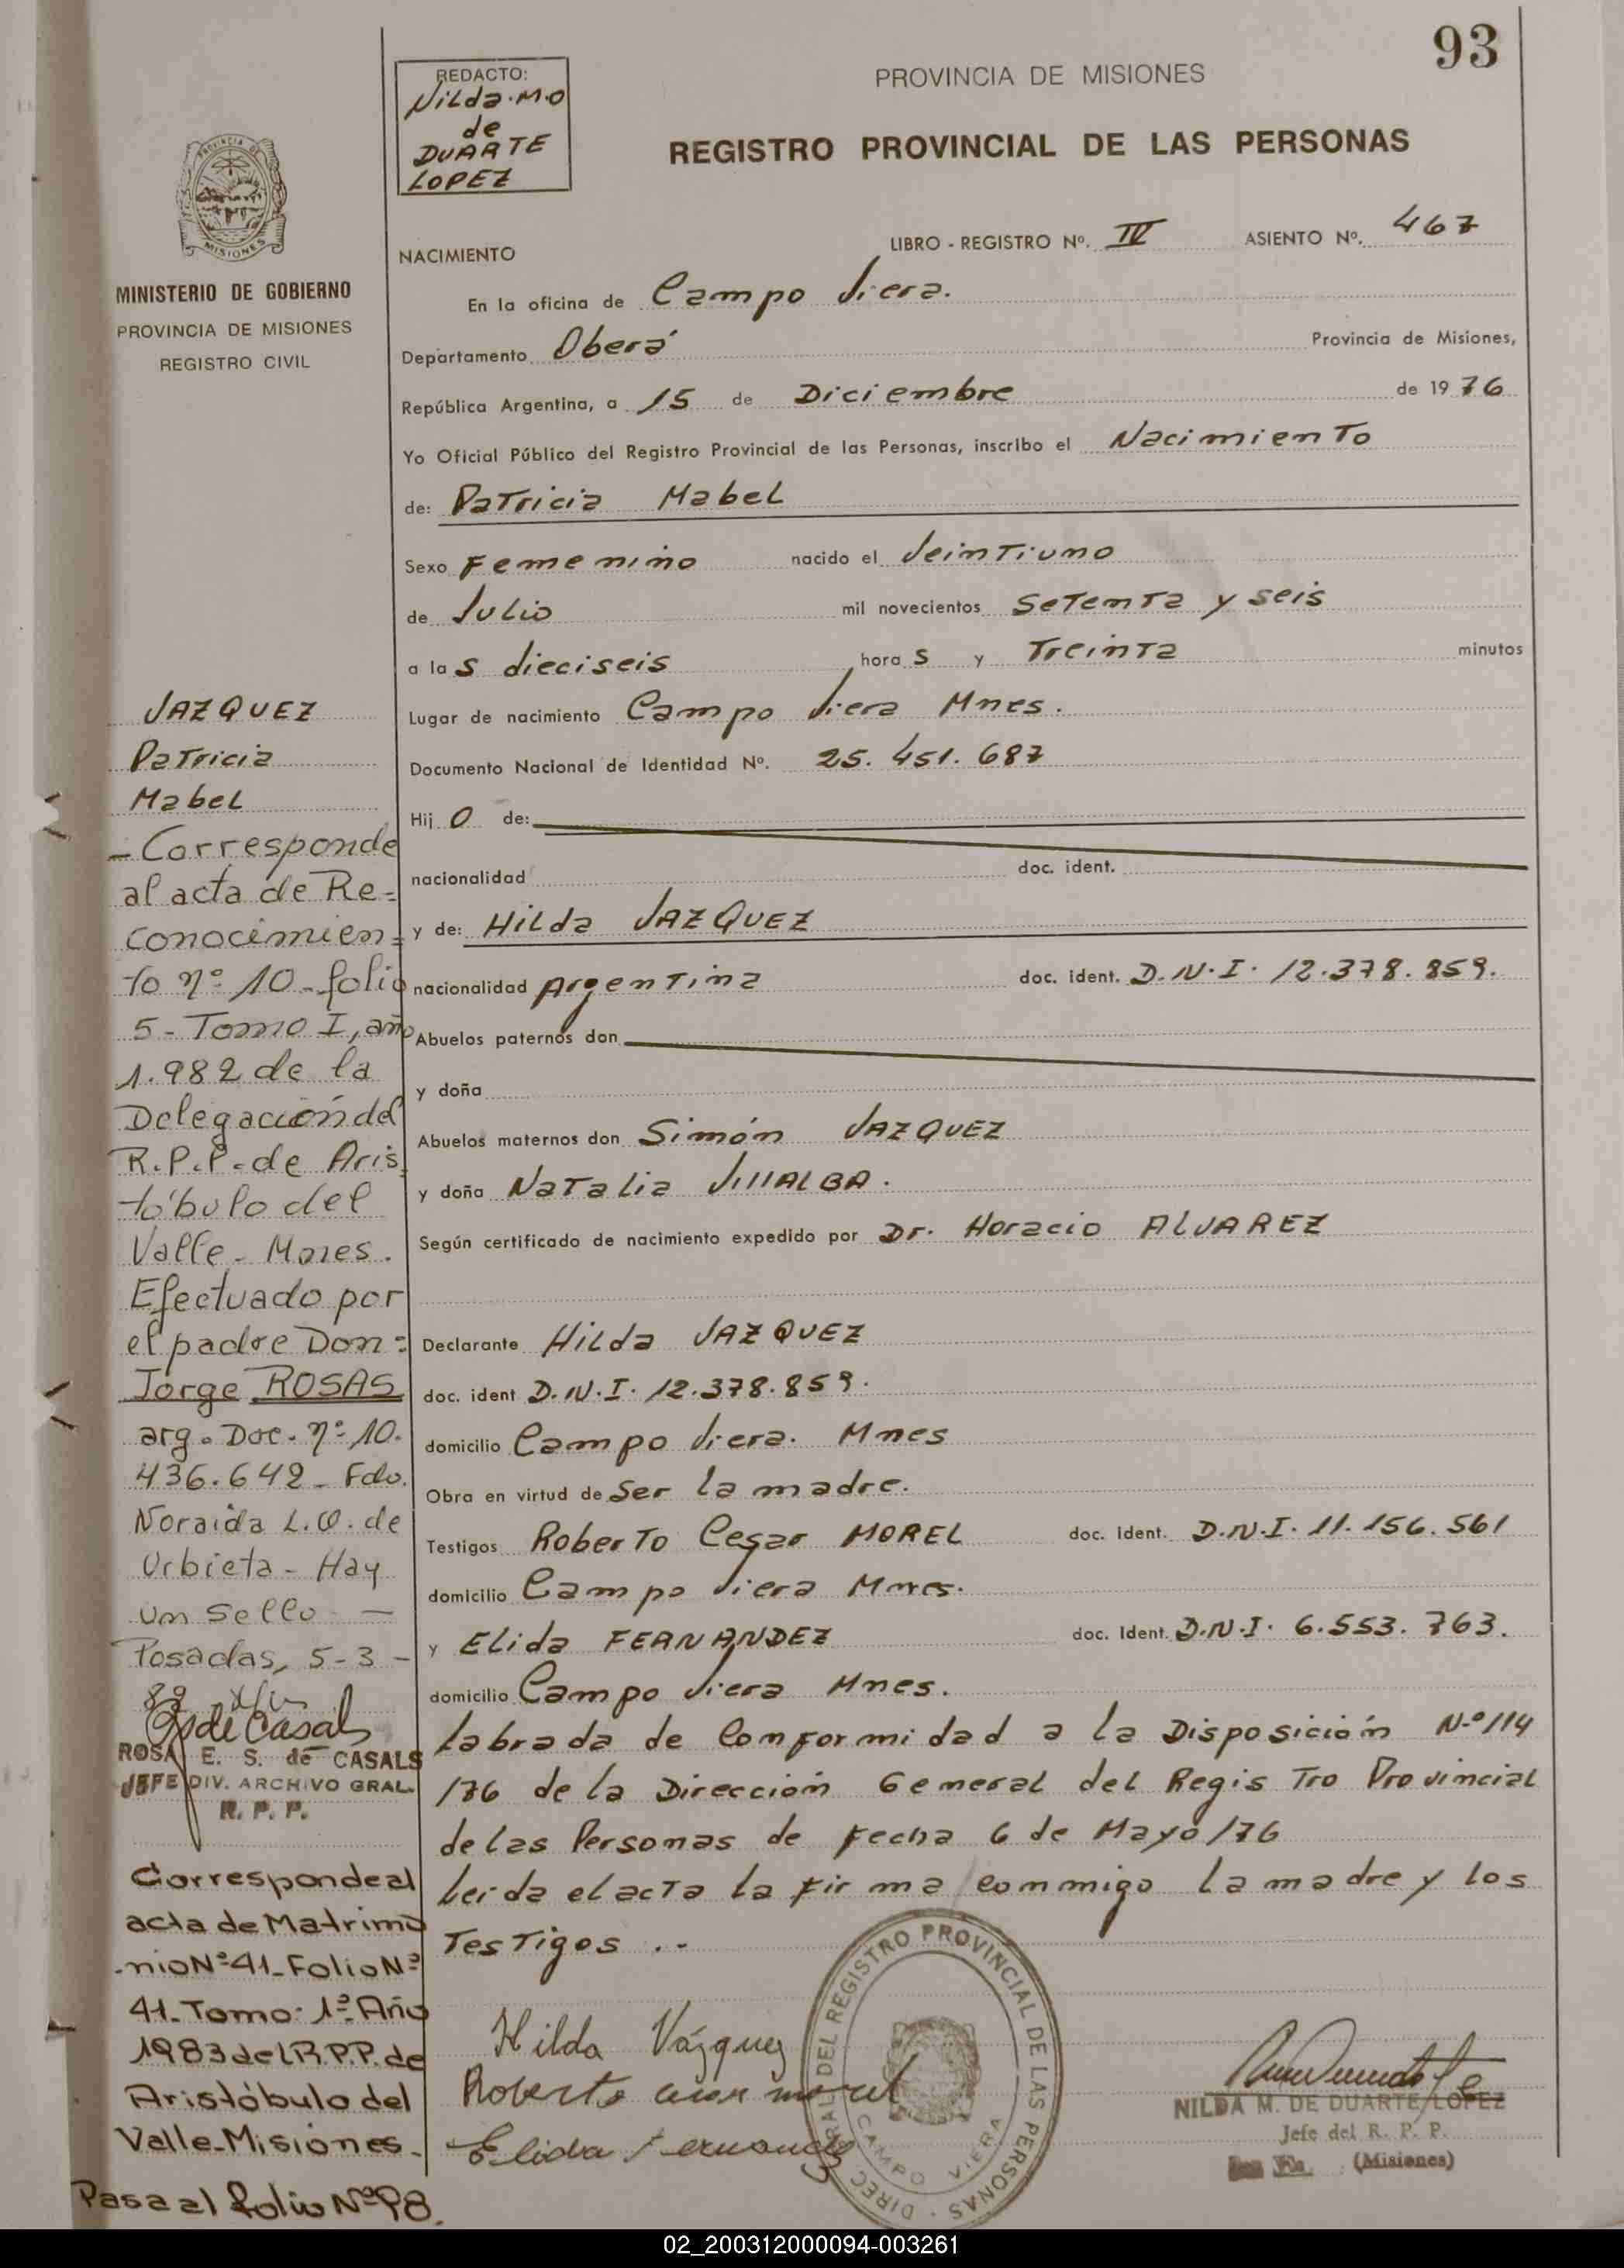 93
REDACTO:
Nilda.M.O
de
DUARTE
LOPEZ
PROVINCIA DE MISIONES
REGISTRO PROVINCIAL DE LAS PERSONAS
PROVINCIA DE
MISIONES
MINISTERIO DE GOBIERNO
PROVINCIA DE MISIONES
REGISTRO CIVIL
NACIMIENTO
LIBRO - REGISTRO Nº. IV ASIENTO Nº. 467
En la oficina de Campo Viera.
Departamento Oberá Provincia de Misiones,
República Argentina, a 15 de Diciembre de 1976
Yo Oficial Público del Registro Provincial de las Personas, inscribo el Nacimiento
de: Patricia Mabel
Sexo Femenino nacido el Veintiuno
de Julio mil novecientos Setenta y seis
a las dieciseis horas y Treinta minutos
Lugar de nacimiento Campo Viera Mnes.
Documento Nacional de Identidad Nº. 25.451.687
Hijo de:
nacionalidad doc. ident.
y de: Hilda VAZQUEZ
nacionalidad Argentina doc. ident. D.N.I. 12.378.859.
Abuelos paternos don
y doña
Abuelos maternos don Simón VAZQUEZ
y doña Natalia VIllALBA.
Según certificado de nacimiento expedido por Dr. Horacio ALVAREZ
Declarante Hilda VAZQUEZ
doc. ident D.N.I. 12.378.859.
domicilio Campo Viera. Mnes
Obra en virtud de Ser la madre.
Testigos Roberto Cesar MOREL doc. ident. D.N.I. 11.156.561
domicilio Campo Viera Mnes.
y Elida FERNANDEZ doc. Ident. D.N.I. 6.553.763.
domicilio Campo Viera Mnes.
Labrada de Conformidad a la Disposición N.º 114
/76 de la Dirección General del Registro Provincial
de las Personas de Fecha 6 de Mayo/76
Leida el acta la firma conmigo la madre y los
Testigos ..-
Hilda Vázquez
Roberto Cesar morel
Elida Fernandez
DIREC RAL DEL REGISTRO PROVINCIAL DE LAS PERSONAS
CAMPO VIERA
NILDA M. DE DUARTE LOPEZ
Jefe del R. P. P.
(Misiones)
VAZQUEZ
Patricia
Mabel
- Corresponde
al acta de Re=
conocimien=
to nº 10 - folio
5 - Tomo I, año
1.982 de la
Delegación del
R.P.P. de Aris
tóbulo del
Valle - Mnes.
Efectuado por
el padre Don:
Jorge ROSAS
arg. Doc. nº 10.
436.642 - Fdo.
Noraida L.O. de
Urbieta - Hay
un sello. —
Posadas, 5-3-
82
ROSA E. S. de CASALS
JEFE DIV. ARCHIVO GRAL.
R. P. P.
Corresponde al
acta de Matrimo
nio Nº 41 - Folio Nº
41 - Tomo: 1º Año
1983 del R.P.P. de
Aristóbulo del
Valle - Misiones.
Pasa al folio Nº 98.
02_200312000094-003261